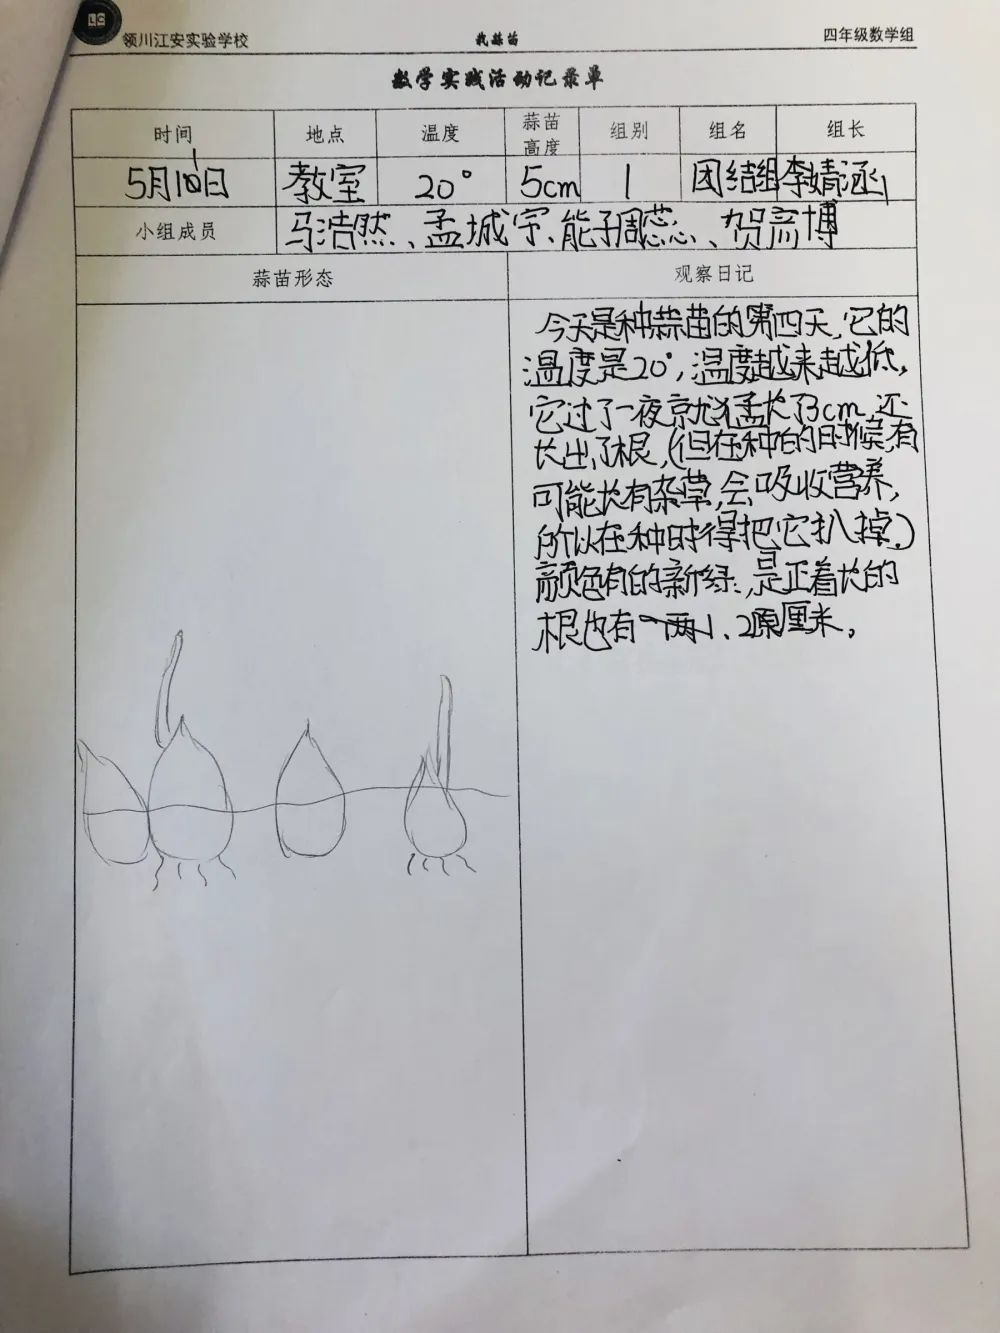 LC
领川江安实验学校 栽蒜苗 四年级数学组
数学实践活动记录单
时间 地点 温度 蒜苗高度 组别 组名 组长
5月10日 教室 20° 5cm 1 团结组 李婧涵
小组成员 马浩然、孟城宇、能子周蕊、贺斋博
蒜苗形态 观察日记
今天是种蒜苗的第四天,它的
温度是20°,温度越来越低,
它过了一夜就猛长了3cm 还
长出了根,(但在种的时候,有
可能长有杂草,会吸收营养,
所以在种时得把它扒掉.)
颜色有的新绿,是正着长的
根也有1、2厘米。